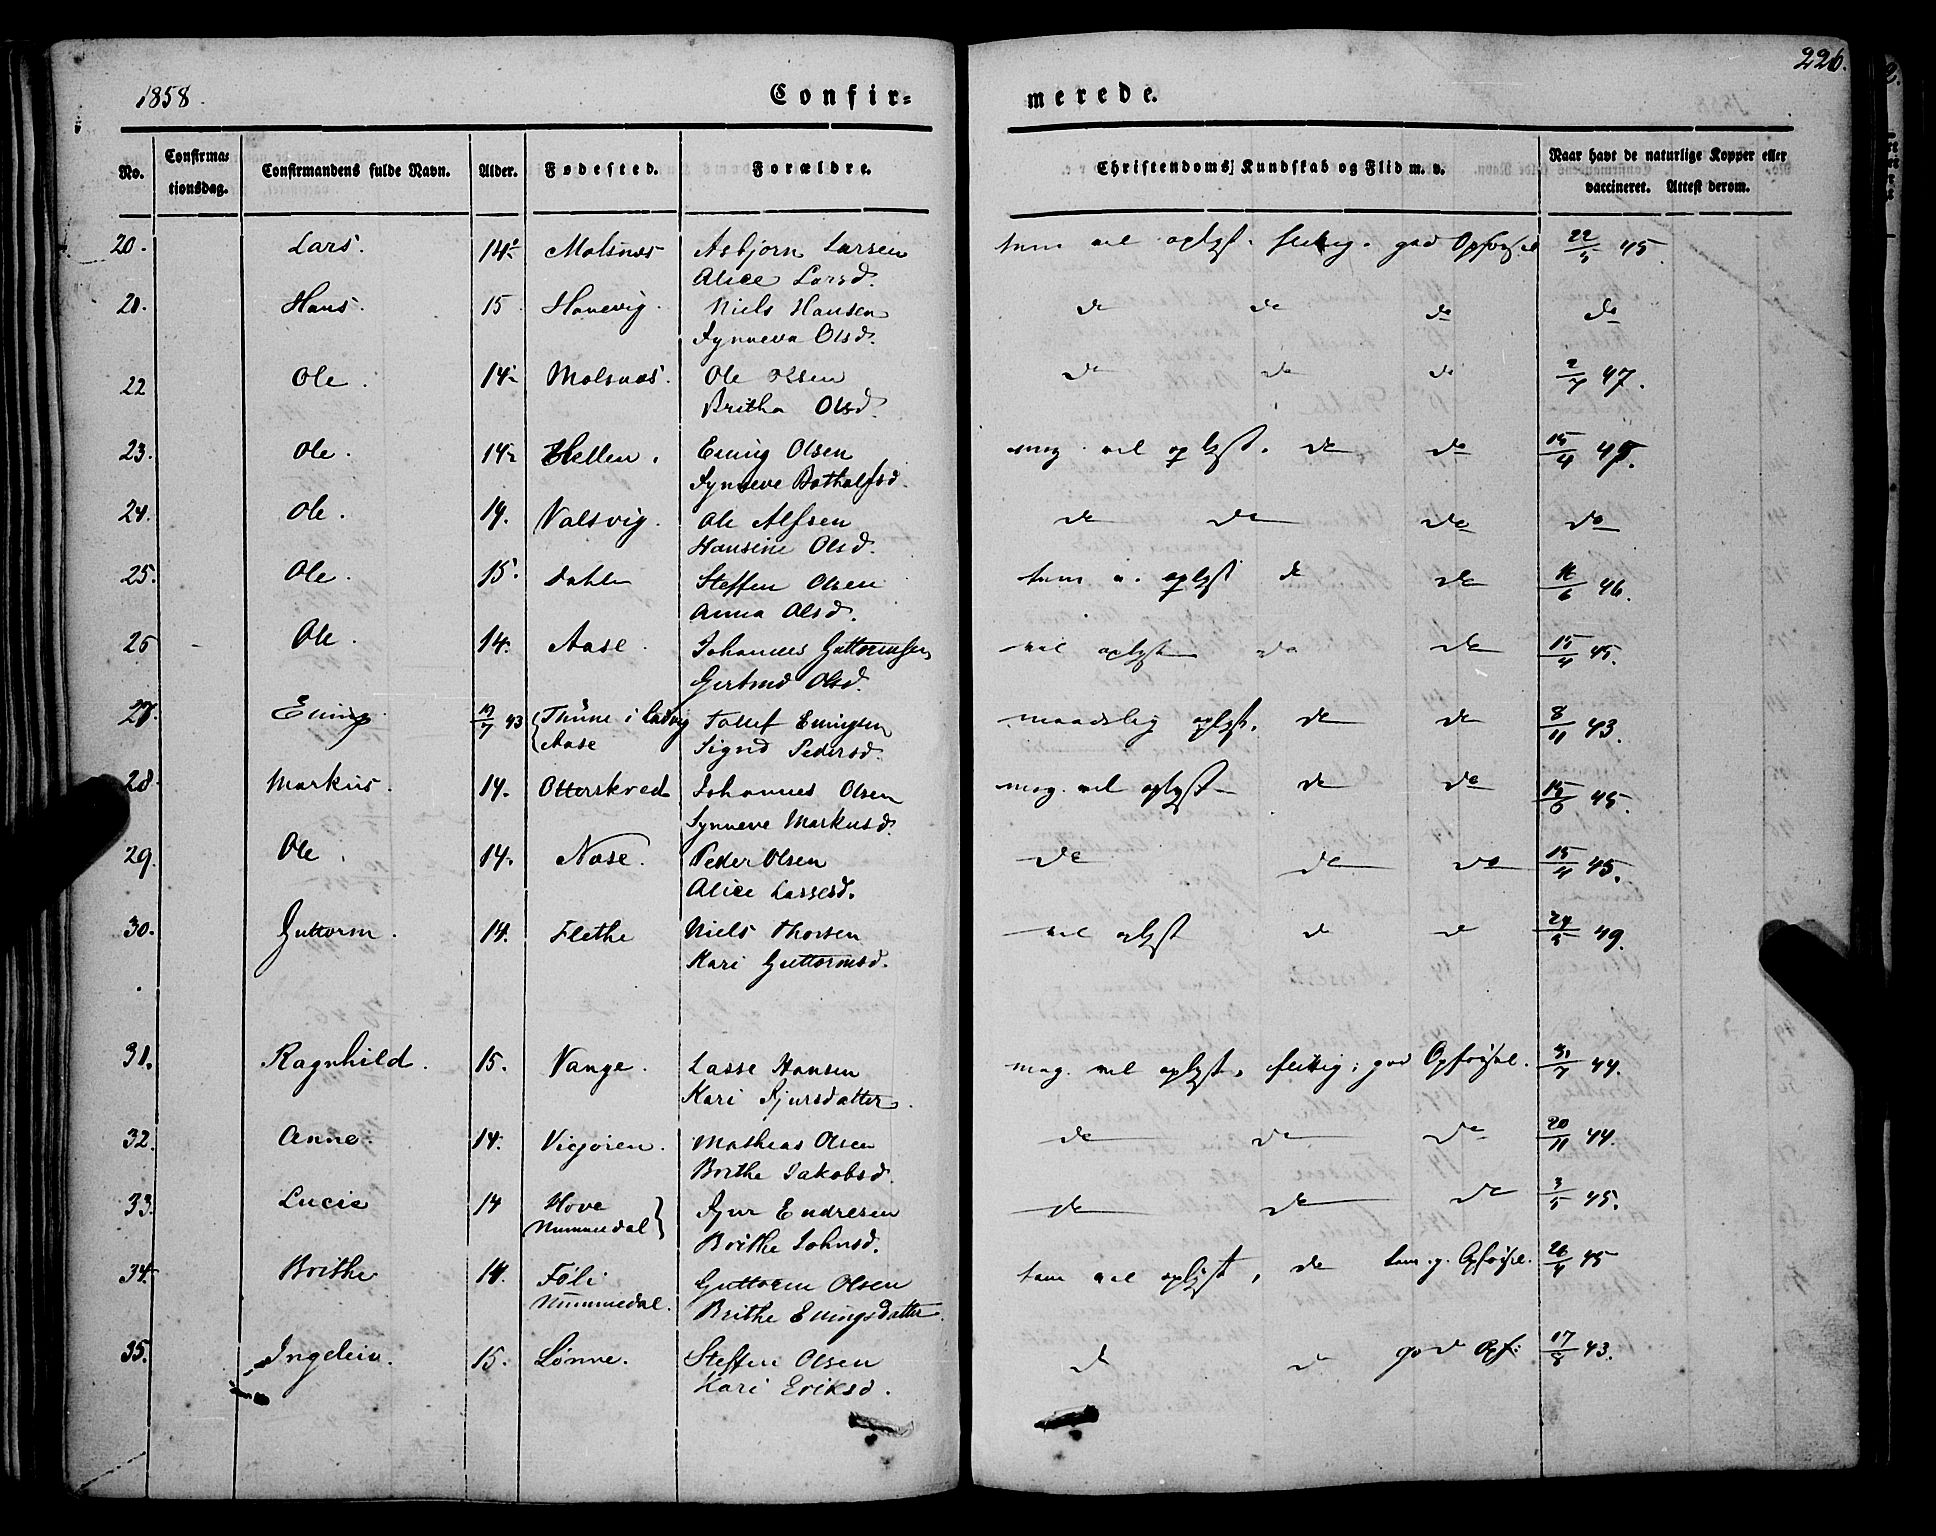 1858. Confir= merede. 226.
No. Confirma= tionsdag. Confirmandens fulde Navn. Alder. Fødested. Forældre. Christendoms Kundskab og Flid m. v. Naar havt de naturlige Kopper eller vaccineret. Attest derom.
20. Lars. 14 Molsnæs Asbjørn Larsen tem. vel oplyst. flittig. god Opførsel 22/5 45.
Alice Larsd.
21. Hans. 15 Hanevig. Niels Hansen do do do do
Synneva Olsd.
22 Ole. 14 Molsnæs. Ole Olsen do do do 2/7 47.
Britha Olsd.
23. Ole. 14 Hellen. Ening Olsen mg. vel oplyst. do do 15/4 45.
Synneve Bothalfsd.
24. Ole. 14. Valsvig. Ole Alfsen do do do do
Hansine Olsd.
25. Ole. 15. Dahle Steffen Olsen tem. v. oplyst do do 46.
Anna Olsd.
26 Ole. 14. Aase. Johannes Guttormsen vel oplyst do do 15/4 45.
Gertrud Olsd.
27. Ening 43 Thüne i Ladvig Tollef Eningsen maadelig oplyst. do do 8/11 43.
Aase Sigrid Pedersd.
28. Markus. 14. Otterskred Johannes Olsen mg. vel oplyst do do 45.
Synneve Markusd.
29. Ole. 14. Næse. Peder Olsen do do do 15/4 45.
Alice Lassesd.
30. Guttorm. 14. Flethe Niels Thorsen vel oplyst do do 24/5 49.
Kari Guttormsd.
31. Ragnhild. 15. Vange. Lasse Hansen mg. vel oplyst, flittig; god Opførsel. 31/7 44.
Kari Sjursdatter.
32. Anne. 14. Vigøren. Mathias Olsen do do do 20/11 44.
Brithe Jakobsd.
33. Lucie 14 Hove Sjur Endresen do do do 3/5 45.
Nummedal Brithe Johnsd.
34. Brithe 14. Føli Guttorm Olsen tem. vel oplyst, do tem. g. Opførsel. 26/4 45
Nummedal. Brithe Eningsdatter.
35. Ingeleiv. 15. Lønne. Steffen Olsen do do god Opf: 17/8 43.
Kari Eriksd.